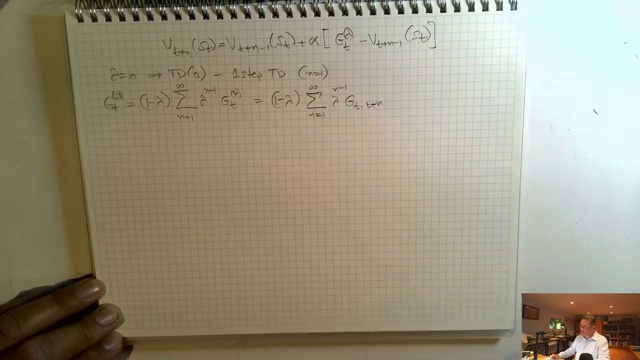 V_{t+n}(S_t) = V_{t+n-1}(S_t) + α [ G_t^λ - V_{t+n-1}(S_t) ]
λ=0 ⇒ TD(0) - 1 step TD (n=1)
G_t^{(λ)} = (1-λ) ∑_{n=1}^{∞} λ^{n-1} G_t^{(n)} = (1-λ) ∑_{n=1}^{∞} λ^{n-1} G_{t:t+n}